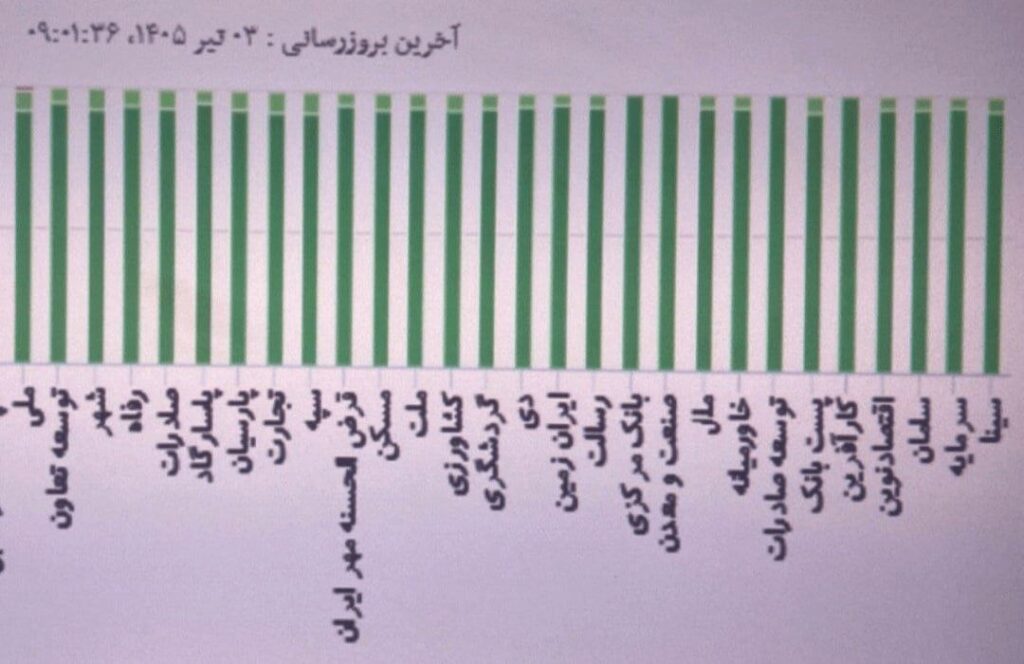 آخرین بروزرسانی : ۰۳ تیر ۱۴۰۵، ۰۹:۰۱:۳۶
ملی
توسعه تعاون
شهر
رفاه
صادرات
پاسارگاد
پارسیان
تجارت
سپه
قرض الحسنه مهر ایران
مسکن
ملت
کشاورزی
گردشگری
دی
ایران زمین
رسالت
بانک مرکزی
صنعت و معدن
مال
خاورمیانه
توسعه صادرات
پست بانک
کارآفرین
اقتصادنوین
سامان
سرمایه
سینا